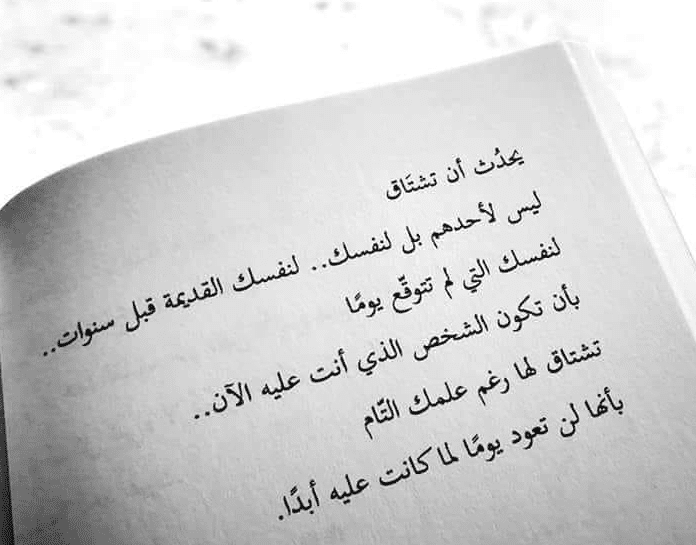 يحدُث أن تشتَاق
ليس لأحدهم بل لنفسك.. لنفسك القديمة قبل سنوات..
لنفسك التي لم تتوقّع يومًا
بأن تكون الشخص الذي أنت عليه الآن..
تشتاق لها رغم علمك التّام
بأنها لن تعود يومًا لما كانت عليه أبدًا.